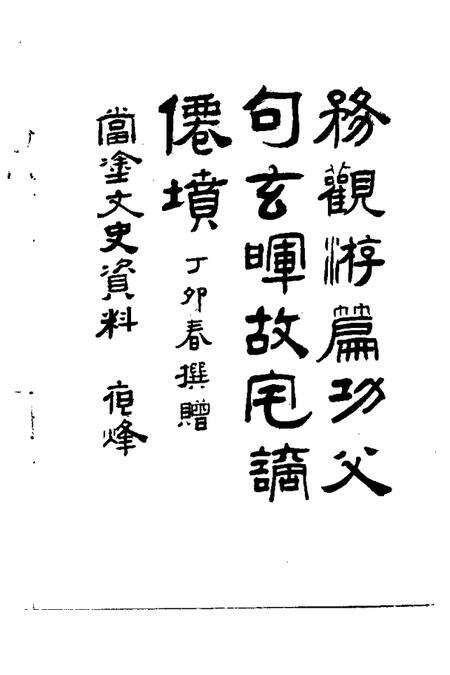 務觀游篇功父
句玄暉故宅謫
僊墳 丁卯春撰贈
當塗文史資料 夜烽